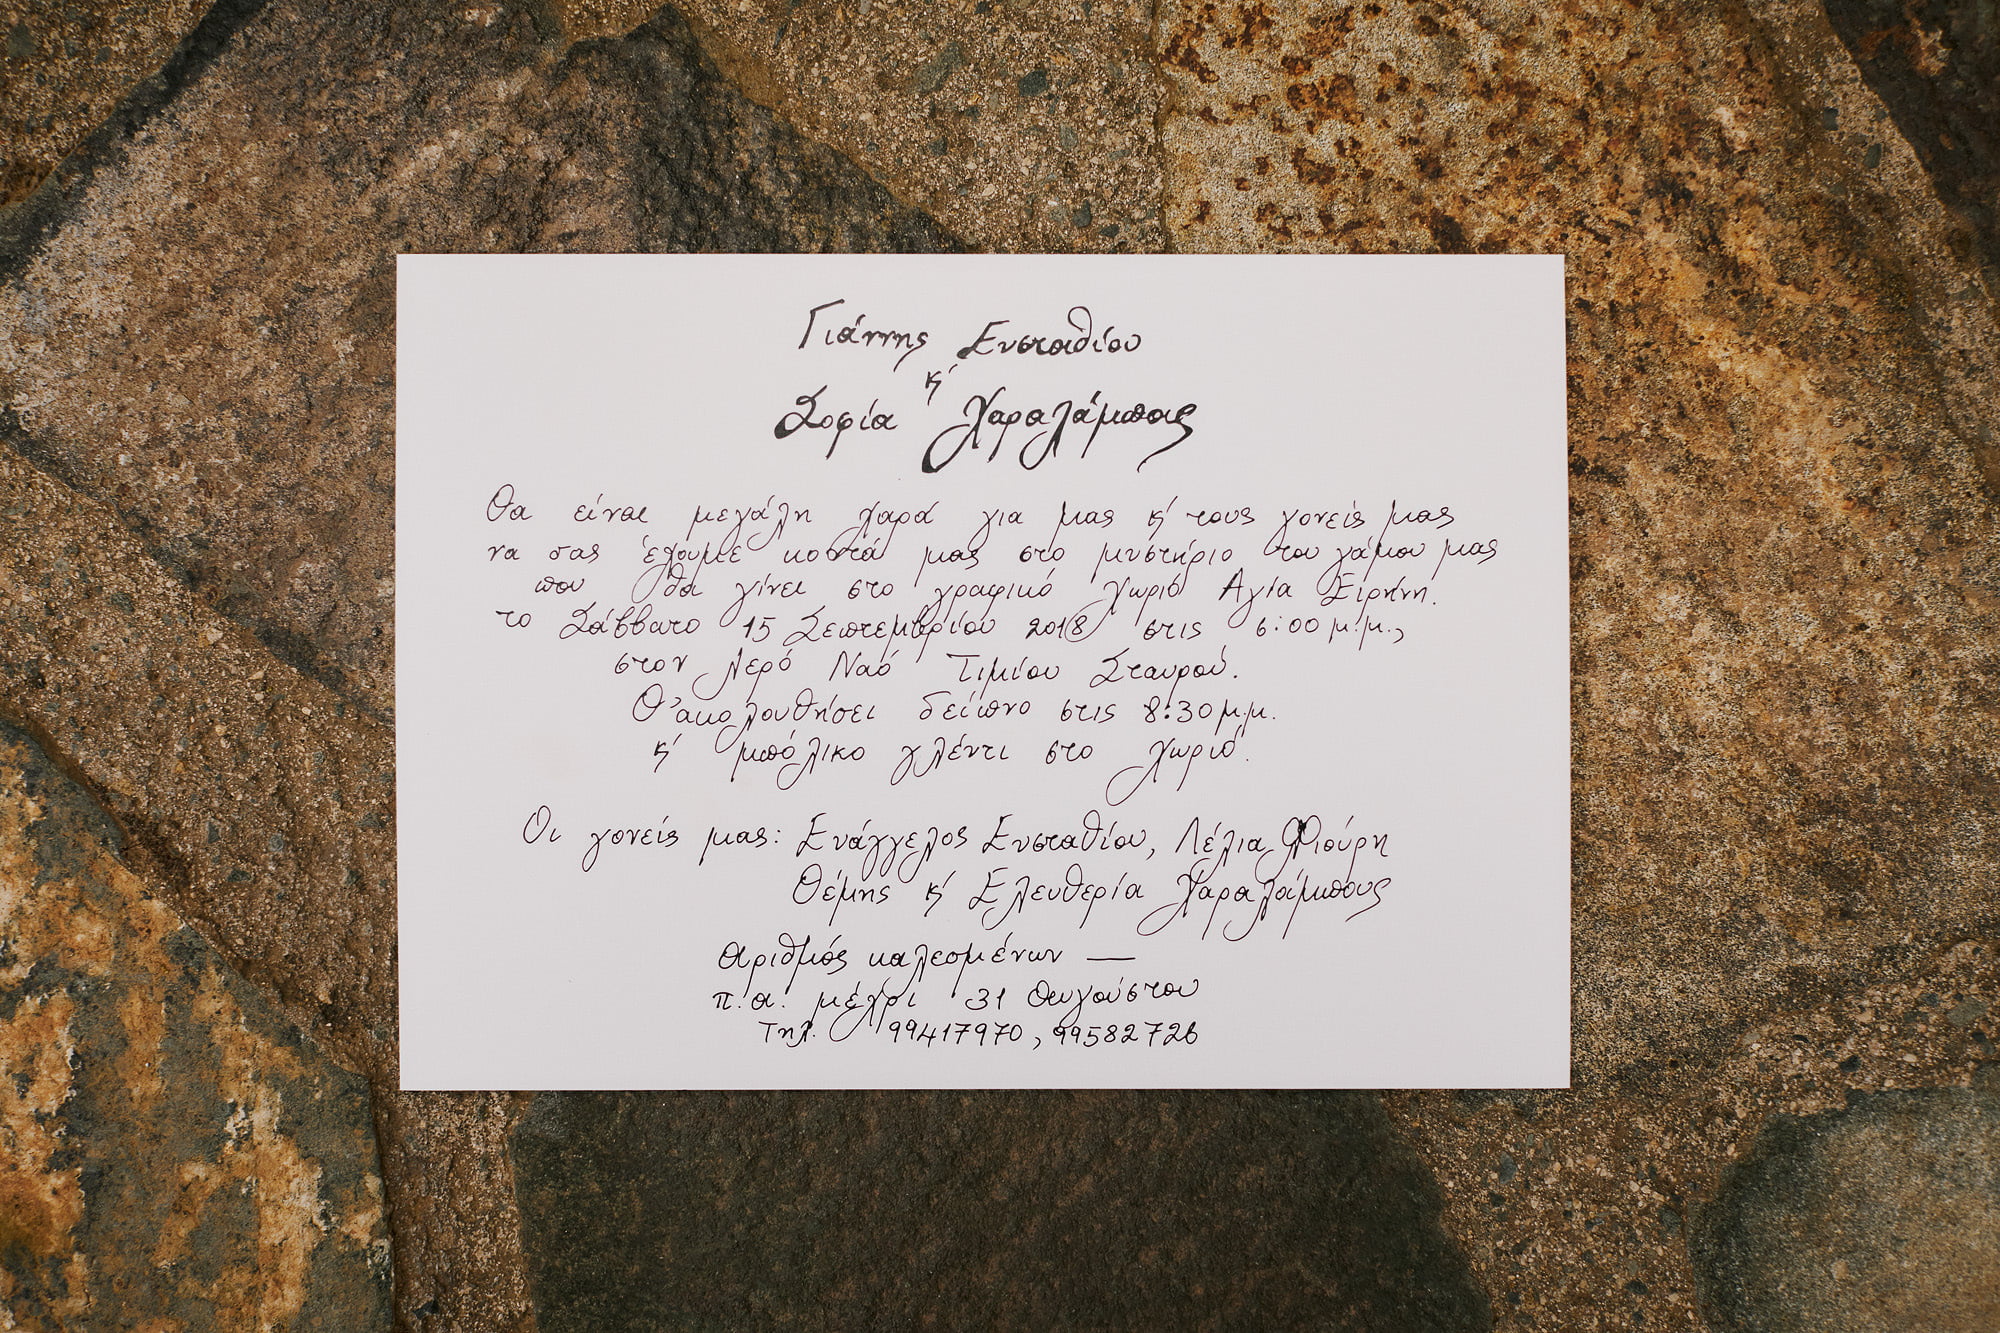 Γιάννης Ευσταθίου
κ'
Σοφία Χαραλάμπους
Θα είναι μεγάλη χαρά για μας κ' τους γονείς μας
να σας έχουμε κοντά μας στο μυστήριο του γάμου μας
που θα γίνει στο γραφικό χωριό Αγία Ειρήνη.
το Σάββατο 15 Σεπτεμβρίου 2018 στις 5:00 μ.μ.,
στον Ιερό Ναό Τιμίου Σταυρού.
Θ' ακολουθήσει δείπνο στις 8:30 μ.μ.
κ' μπόλικο γλέντι στο χωριό.
Οι γονείς μας: Ευάγγελος Ευσταθίου, Λέλια Φλιούρη
Θέμης κ' Ελευθερία Χαραλάμπους
Αριθμός καλεσμένων —
π.α. μέχρι 31 Αυγούστου
Τηλ. 99417970, 99582726